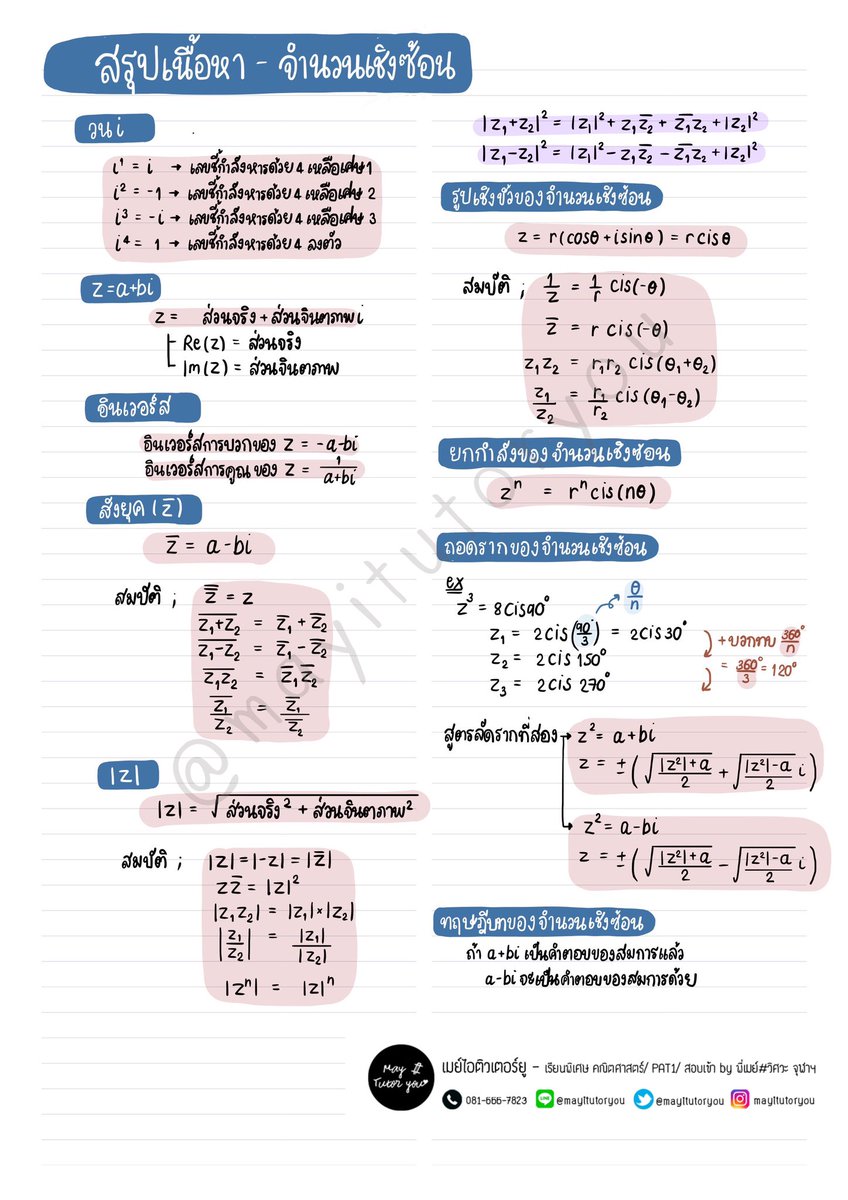 สรุปเนื้อหา - จำนวนเชิงซ้อน
วน i
i¹ = i → เลขชี้กำลังหารด้วย 4 เหลือเศษ 1
i² = -1 → เลขชี้กำลังหารด้วย 4 เหลือเศษ 2
i³ = -i → เลขชี้กำลังหารด้วย 4 เหลือเศษ 3
i⁴ = 1 → เลขชี้กำลังหารด้วย 4 ลงตัว
z=a+bi
z = ส่วนจริง + ส่วนจินตภาพ i
Re(z) = ส่วนจริง
Im(z) = ส่วนจินตภาพ
อินเวอร์ส
อินเวอร์สการบวกของ z = -a-bi
อินเวอร์สการคูณของ z = 1/(a+bi)
สังยุค (z̅)
z̅ = a-bi
สมบัติ ; z̿ = z
\overline{z₁+z₂} = z̅₁ + z̅₂
\overline{z₁-z₂} = z̅₁ - z̅₂
\overline{z₁z₂} = z̅₁z̅₂
\overline{z₁/z₂} = z̅₁/z̅₂
|z|
|z| = √(ส่วนจริง² + ส่วนจินตภาพ²)
สมบัติ ; |z|=|-z|=|z̅|
zz̅ = |z|²
|z₁z₂| = |z₁|×|z₂|
|z₁/z₂| = |z₁|/|z₂|
|zⁿ| = |z|ⁿ
|z₁+z₂|² = |z₁|² + z₁z̅₂ + z̅₁z₂ + |z₂|²
|z₁-z₂|² = |z₁|² - z₁z̅₂ - z̅₁z₂ + |z₂|²
รูปเชิงขั้วของจำนวนเชิงซ้อน
z = r(cosθ + isinθ) = r cisθ
สมบัติ ; 1/z = 1/r cis(-θ)
z̅ = r cis(-θ)
z₁z₂ = r₁r₂ cis(θ₁+θ₂)
z₁/z₂ = r₁/r₂ cis(θ₁-θ₂)
ยกกำลังของจำนวนเชิงซ้อน
zⁿ = rⁿcis(nθ)
ถอดรากของจำนวนเชิงซ้อน
ex
z³ = 8cis90°
θ/n
z₁ = 2cis(90°/3) = 2cis30°
z₂ = 2cis 150°
z₃ = 2cis 270°
+ บวกทบ 360°/n
= 360°/3 = 120°
สูตรลัดรากที่สอง → z² = a+bi
z = ±(√((|z²|+a)/2) + √((|z²|-a)/2) i)
z² = a-bi
z = ±(√((|z²|+a)/2) - √((|z²|-a)/2) i)
ทฤษฎีบทของจำนวนเชิงซ้อน
ถ้า a+bi เป็นคำตอบของสมการแล้ว
a-bi จะเป็นคำตอบของสมการด้วย
@mayitutoryou
May I Tutor you
เมย์ไอติวเตอร์ยู - เรียนพิเศษ คณิตศาสตร์/ PAT1/ สอบเข้า by พี่เมย์#วิศวะ จุฬาฯ
081-666-7823 LINE @mayitutoryou @mayitutoryou mayitutoryou